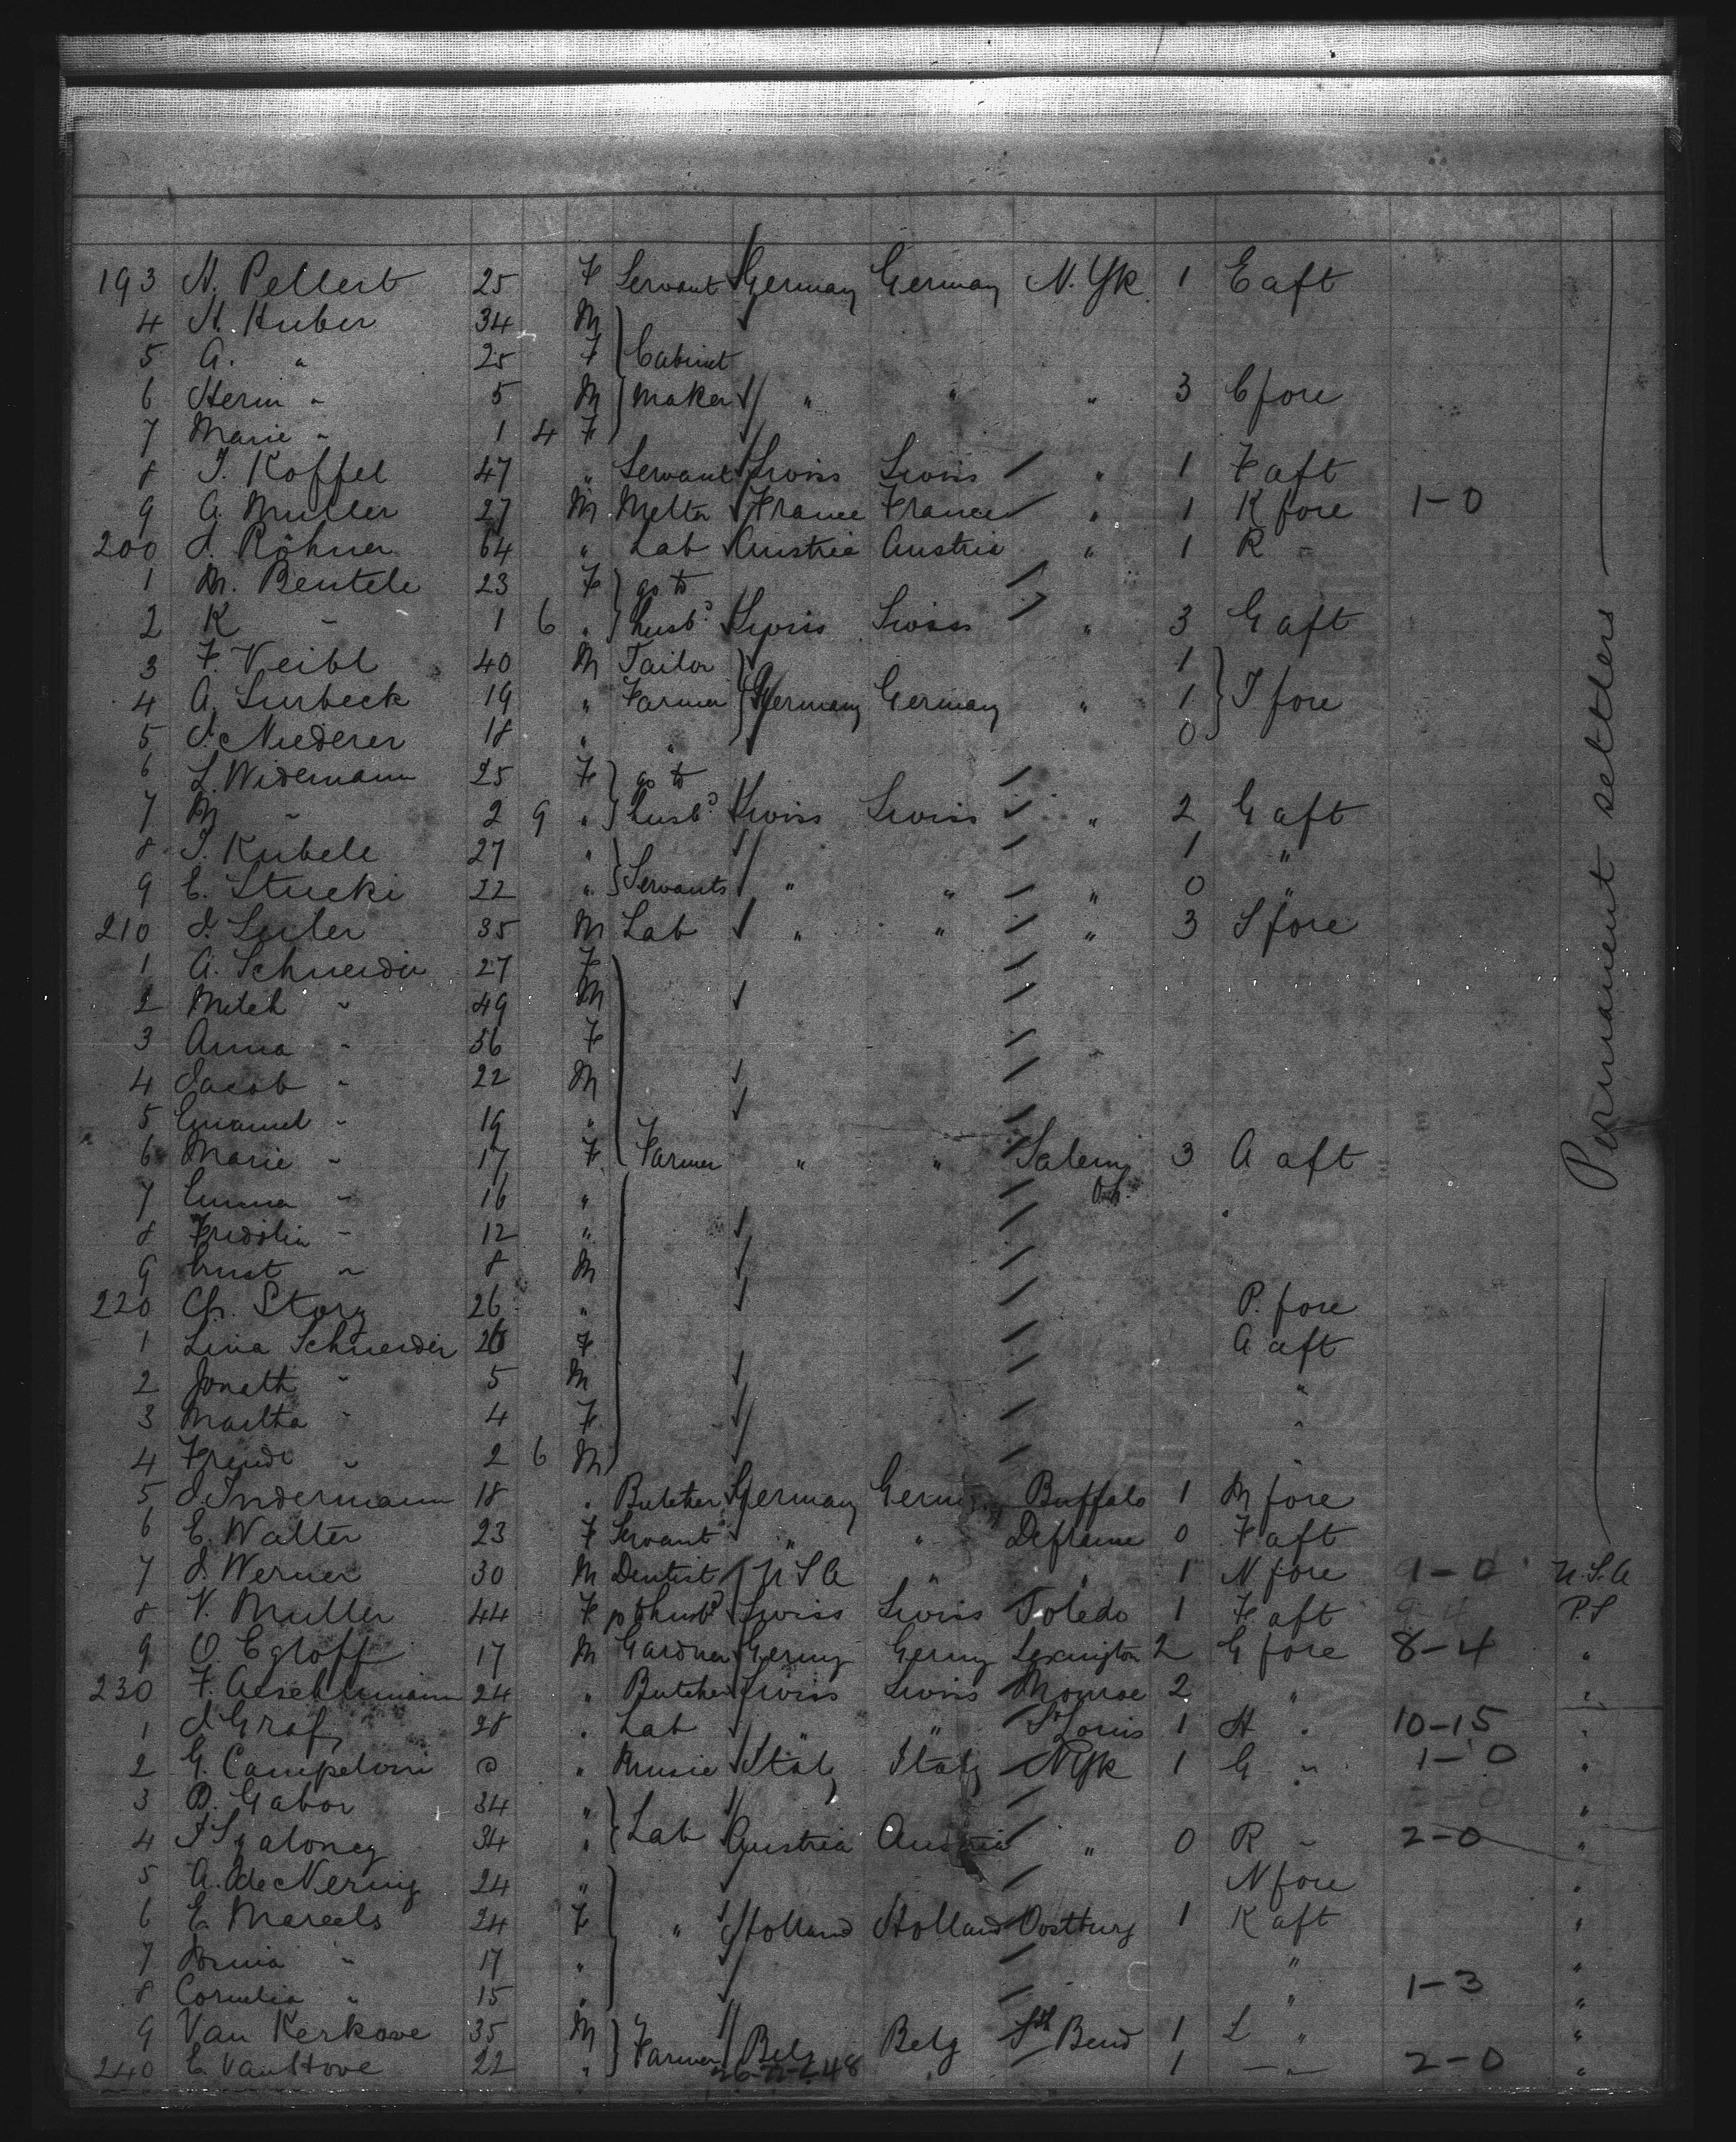 193 N. Pellert 25 F Servant Germany Germany N. Yk. 1 E aft
4 H. Huber 34 M
5 A. " 25 F Cabinet
6 Herm " 5 M Maker " " " 3 C fore
7 Marie " 1 4 F
8 J. Koffel 47 " Servant Swiss Swiss " 1 F aft
9 A. Muller 27 M France France " 1 K fore 1-0
200 J. Röhner 64 " Lab Austria Austria " 1 R "
1 M. Bentele 23 F go to
2 K " 1 6 " husb? Swiss Swiss " 3 G aft
3 F. Veibl 40 M Tailor 1
4 A. Surbeck 19 " Farmer Germany Germany " 1 J fore
5 J. Niederer 18 " " 0
6 L. Widemann 25 F go to
7 M " 2 9 " husb? Swiss Swiss " 2 G aft
8 J. Kubele 27 " 1 "
9 E. Stucki 22 " Servants " " " 0 "
210 J. Suler 35 M Lab " " " 3 S fore
1 A. Schneider 27 F
2 Melch " 49 M
3 Anna " 56 F
4 Jacob " 22 M
5 Emanuel " 19 "
6 Marie " 17 F Farmer " " Salem 3 A aft
7 Emma " 16 " Oh.
8 Fridolin " 12 "
9 Ernst " 8 M
220 Ch. Story 26 " P. fore
1 Lina Schneider 26 F A aft
2 Jonath " 5 M "
3 Martha " 4 F "
4 " 2 6 M "
5 J. Indermann 18 " Butcher Germany Germ Buffalo 1 M fore
6 E. Walter 23 F Servant " " Defiance 0 F aft
7 J. Werner 30 M Dentist U S A " " 1 N fore 1-0 U.S.A
8 V. Muller 44 F husb? Swiss Swiss Toledo 1 F aft 9-4 P.S
9 O. Egloff 17 M Gardner Germy Germy Lexington 2 G fore 8-4 "
230 F. Aeschlimann 24 " Butcher Swiss Swiss Monroe 2 " "
1 J Graf 28 " Lab " " St Louis 1 H " 10-15 "
2 G. Campeloni " Music Italy Italy NYk 1 G " 1-0 "
3 B. Gabor 34 " "
4 34 " Lab Austria Austria " 0 R " 2-0 "
5 A. de Nering 24 " N fore "
6 E. Mareels 24 F " Holland Holland Oostburg 1 K aft "
7 " 17 " " "
8 Cornelia " 15 " " 1-3 "
9 Van Kerkove 35 M Farmer Belg Belg Sth Bend 1 L " "
240 E. Van Hove 22 " " 1 " 2-0 "
Permanent settlers